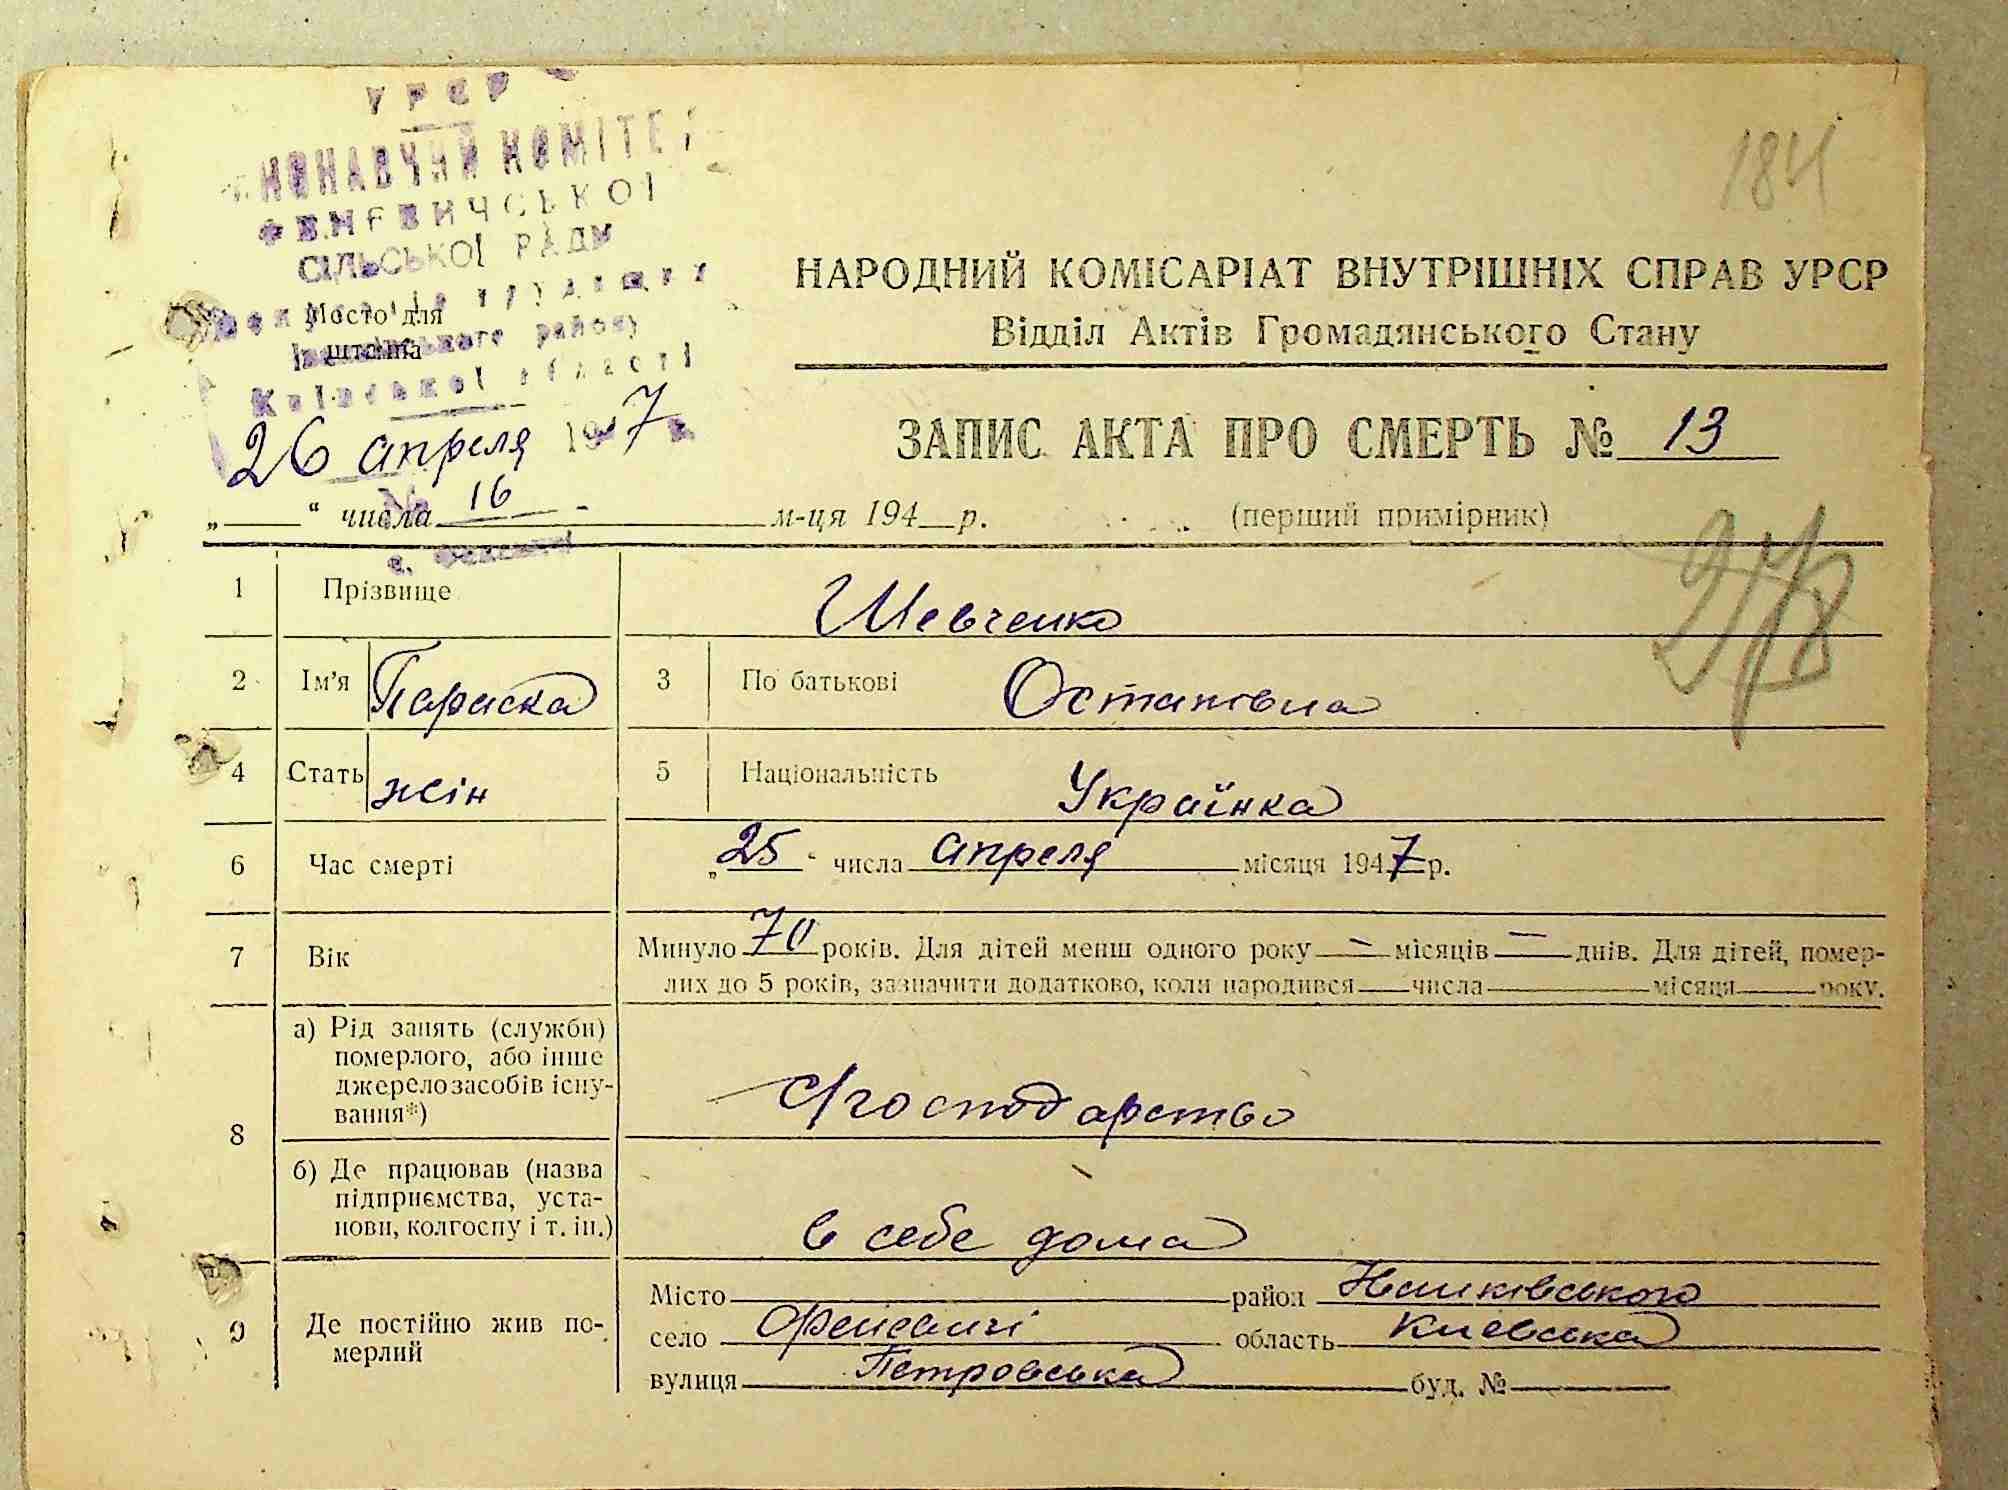 УРСР
ИКОНАВЧИЙ КОМІТЕТ
ФЕНЕВИЧСЬКОЇ
СІЛЬСЬКОЇ РАДИ
трудящих
Місто для
штампа
району
Київської області
26 апреля 1947
№ 16
184
НАРОДНИЙ КОМІСАРІАТ ВНУТРІШНІХ СПРАВ УРСР
Відділ Актів Громадянського Стану
ЗАПИС АКТА ПРО СМЕРТЬ № 13
„ “ числа м-ця 194 р. (перший примірник)
1 Прізвище Шевченко
2 Ім'я Параска 3 По батькові Остапівна
4 Стать жін 5 Національність Українка
6 Час смерті „25“ числа апреля місяця 1947 р.
7 Вік Минуло 70 років. Для дітей менш одного року — місяців — днів. Для дітей, помер-
лих до 5 років, зазначити додатково, коли народився числа місяця року.
8 а) Рід занять (служби)
померлого, або інше
джерело засобів існу-
вання*)
с/господарство
б) Де працював (назва
підприємства, уста-
нови, колгоспу і т. ін.)
в себе дома
9 Де постійно жив по-
мерлий
Місто район
село Феневичі область Киевська
вулиця Петровська буд. №